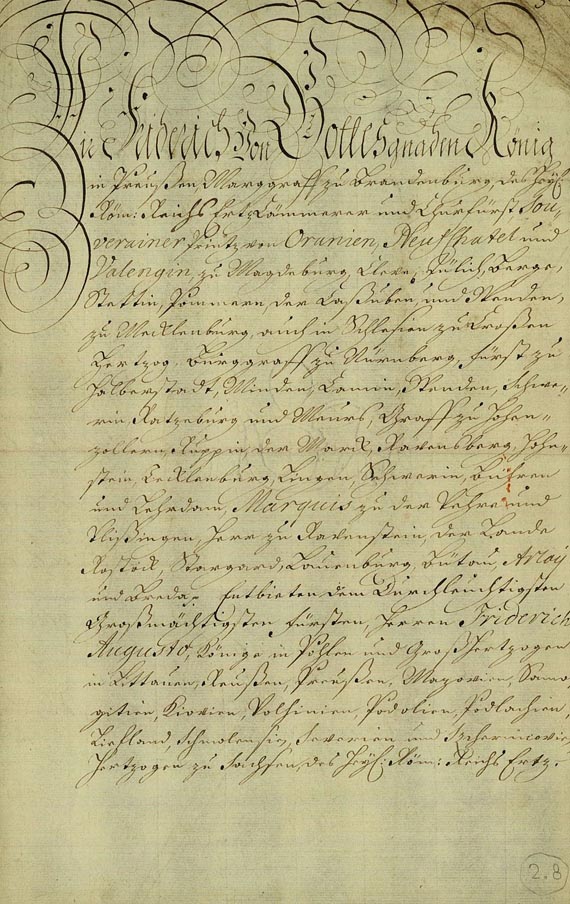 Wir Friderich von Gottes gnaden König
in Preußen, Marggraff zu Brandenburg, des Heyl:
Röm: Reichs Ertz Cammerer und Churfürst, Sou-
verainer Printz von Oranien, Neufchatel und
Valengin, zu Magdeburg, Cleve, Jülich, Berge,
Stettin, Pommern, der Caßuben, und Wenden,
zu Mecklenburg, auch in Schlesien zu Croßen
Hertzog, Burggraff zu Nürnberg, Fürst zu
Halberstadt, Minden, Camin, Wenden, Schwe-
rin, Ratzeburg und Meurs, Graff zu Hohen-
zollern, Ruppin, der Marck, Ravensberg, Hohn-
stein, Tecklenburg, Lingen, Schwerin, Bühren
und Lehrdam, Marquis zu der Vehre und
Vlißingen, Herr zu Ravenstein, der Lande
Rostock, Stargard, Lauenburg, Bütau, Arlay
und Breda. Entbieten dem Durchleuchtigsten
Großmächtigsten Fürsten, Herren Friderich
Augusto, Könige in Pohlen und Groß Hertzogen
in Littauen, Reußen, Preußen, Mazovien, Samo-
gitien, Kiovien, Volhinien, Podolien, Podlachien,
Liefland, Schmolensien, Severien und Tschernicovien,
Hertzogen zu Sachsen, des Heyl: Röm: Reichs Ertz-
2.8